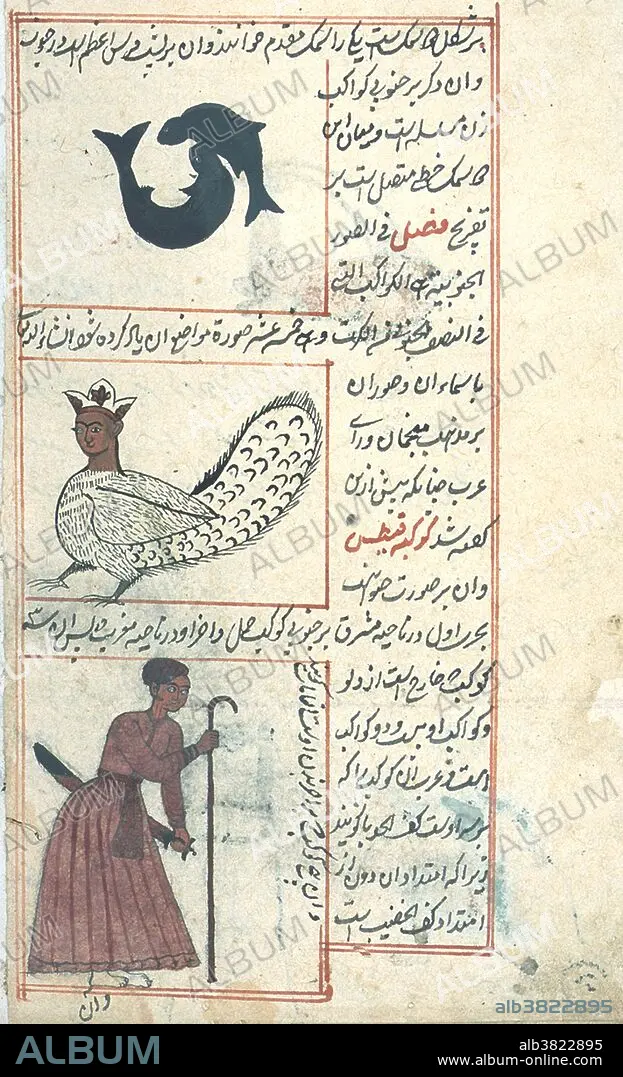 بر شکل دو سمکست یکی را سمک مقدم خوانند و ان بر پشت فرس اعظم است در جنوب
وان دکر بر جنوبی کواکب
زن مسلسله است و میان این
دو سمک خطی متصل است بر
تعریج فصل فی الصور
الجنوبیة الکواکب التی
فی النصف الجنوبی من الکرة وهی خمسة عشر صورة مواضع ان یاد کرده شود انشاء الله
باسماء ان و صور ان
بر مذهب منجمان و رای
عرب چنانکه پیش ازین
کفته شد کوکبة قیطس
وان بر صورت حیوانیست
بحری اول در ناحیه مشرق بر جنوبی کوکب حمل و اخر او در ناحیه مغرب
کوکب خارج است از دلو
و کواکب او بیست و دو کواکب
است و عرب ان کوکب را که
بر سر اوست کف الجذما کویند
زیرا که امتداد ان دون از
امتداد کف الخضیب است
وان
ALBUM
alb3822895
ALBUM
alb3822895
www.album-online.com